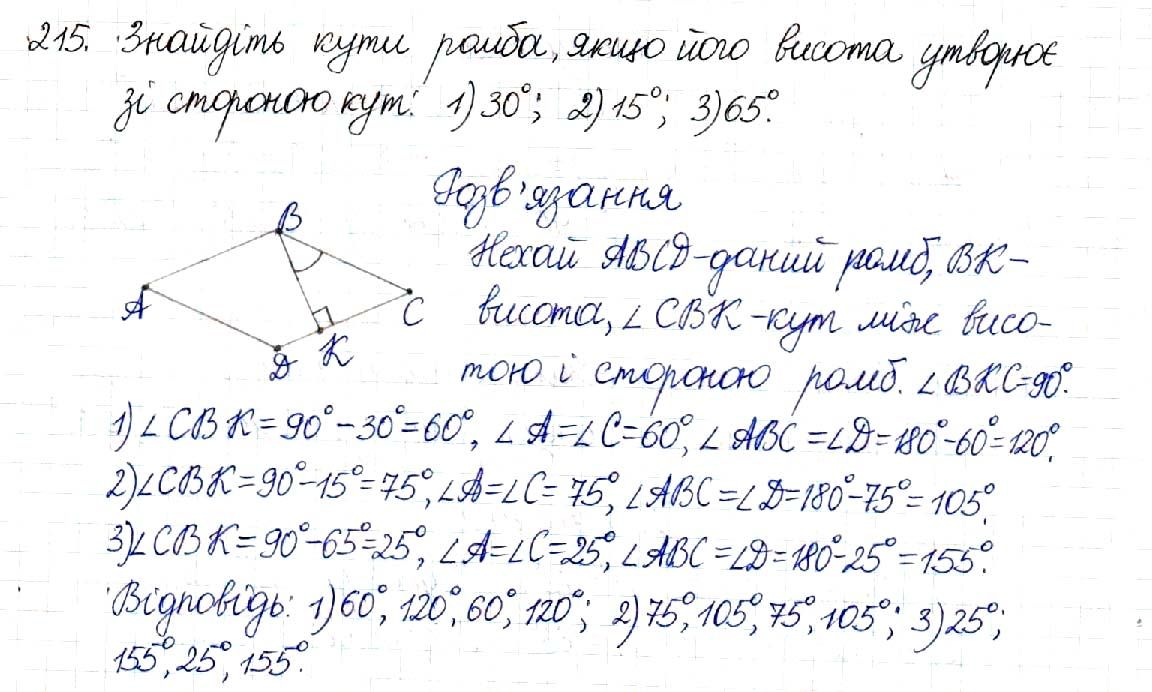 215. Знайдіть кути ромба, якщо його висота утворює
зі стороною кут: 1) 30°; 2) 15°; 3) 65°.
Розв'язання
B
A
C
D
K
Нехай ABCD-даний ромб, BK-
висота, ∠CBK-кут між висо-
тою і стороною ромб. ∠BKC=90°.
1) ∠CBK=90°-30°=60°, ∠A=∠C=60°, ∠ABC=∠D=180°-60°=120°.
2) ∠CBK=90°-15°=75°, ∠A=∠C=75°, ∠ABC=∠D=180°-75°=105°.
3) ∠CBK=90°-65°=25°, ∠A=∠C=25°, ∠ABC=∠D=180°-25°=155°.
Відповідь: 1) 60°, 120°, 60°, 120°; 2) 75°, 105°, 75°, 105°; 3) 25°;
155°, 25°, 155°.